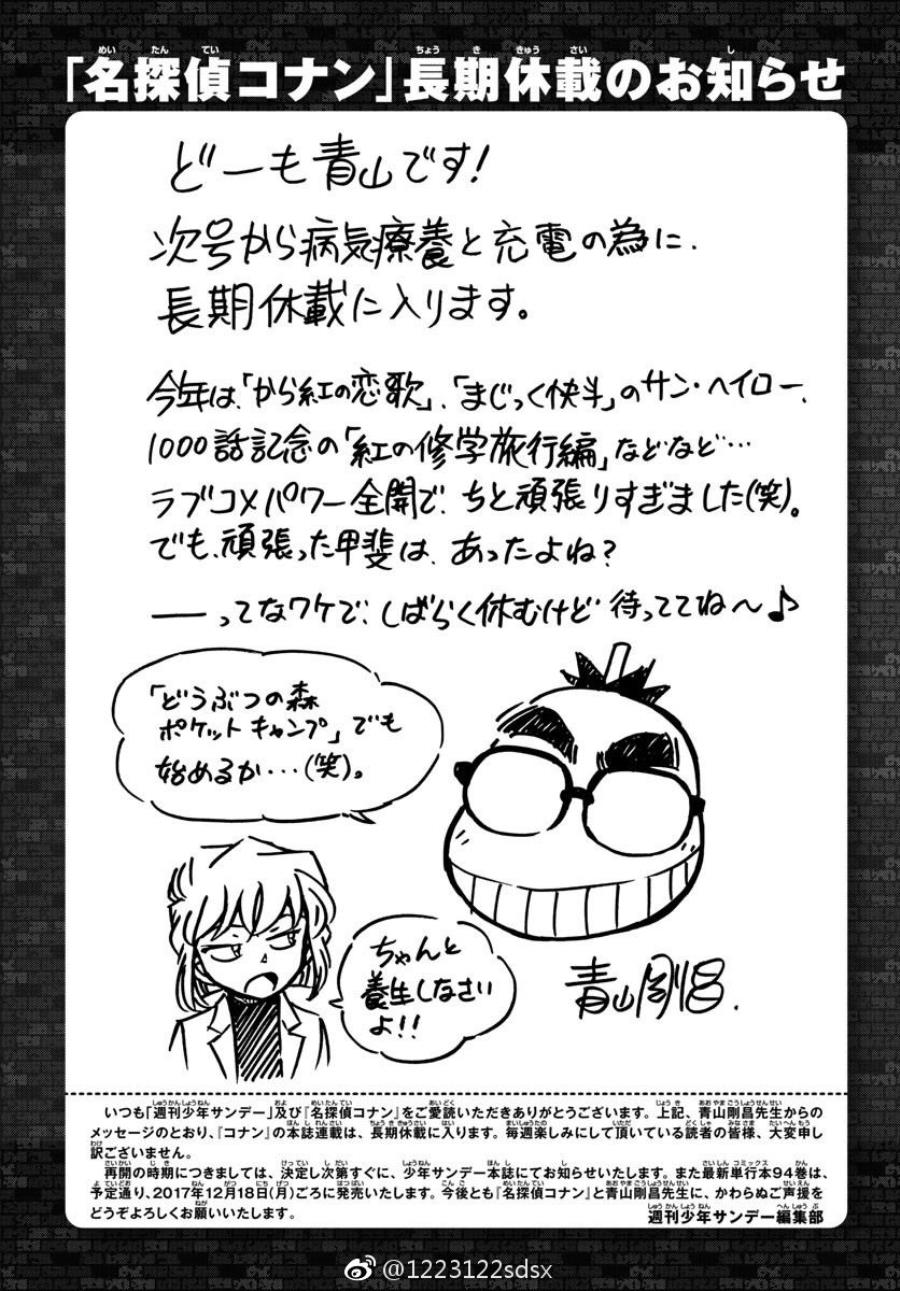 「名探偵コナン」長期休載のお知らせ
どーも青山です!
次号から病気療養と充電の為に、
長期休載に入ります。
今年は、「から紅の恋歌」、「まじっく快斗」のサン・ヘイロー、
1000話記念の「紅の修学旅行編」などなど…
ラブコメパワー全開で、ちと頑張りすぎました(笑)。
でも、頑張った甲斐は、あったよね?
――ってなワケで、しばらく休むけど待っててね〜♪
「どうぶつの森
ポケットキャンプ」でも
始めるか…(笑)。
ちゃんと
養生しなさい
よ!!
青山剛昌.
いつも「週刊少年サンデー」及び『名探偵コナン』をご愛読いただきありがとうございます。上記、青山剛昌先生からの
メッセージのとおり、『コナン』の本誌連載は、長期休載に入ります。毎週楽しみにして頂いている読者の皆様、大変申し
訳ございません。
再開の時期につきましては、決定し次第すぐに、少年サンデー本誌にてお知らせいたします。また最新単行本94巻は、
予定通り、2017年12月18日(月)ごろに発売いたします。今後とも『名探偵コナン』と青山剛昌先生に、かわらぬご声援を
どうぞよろしくお願いいたします。
週刊少年サンデー編集部
@1223122sdsx